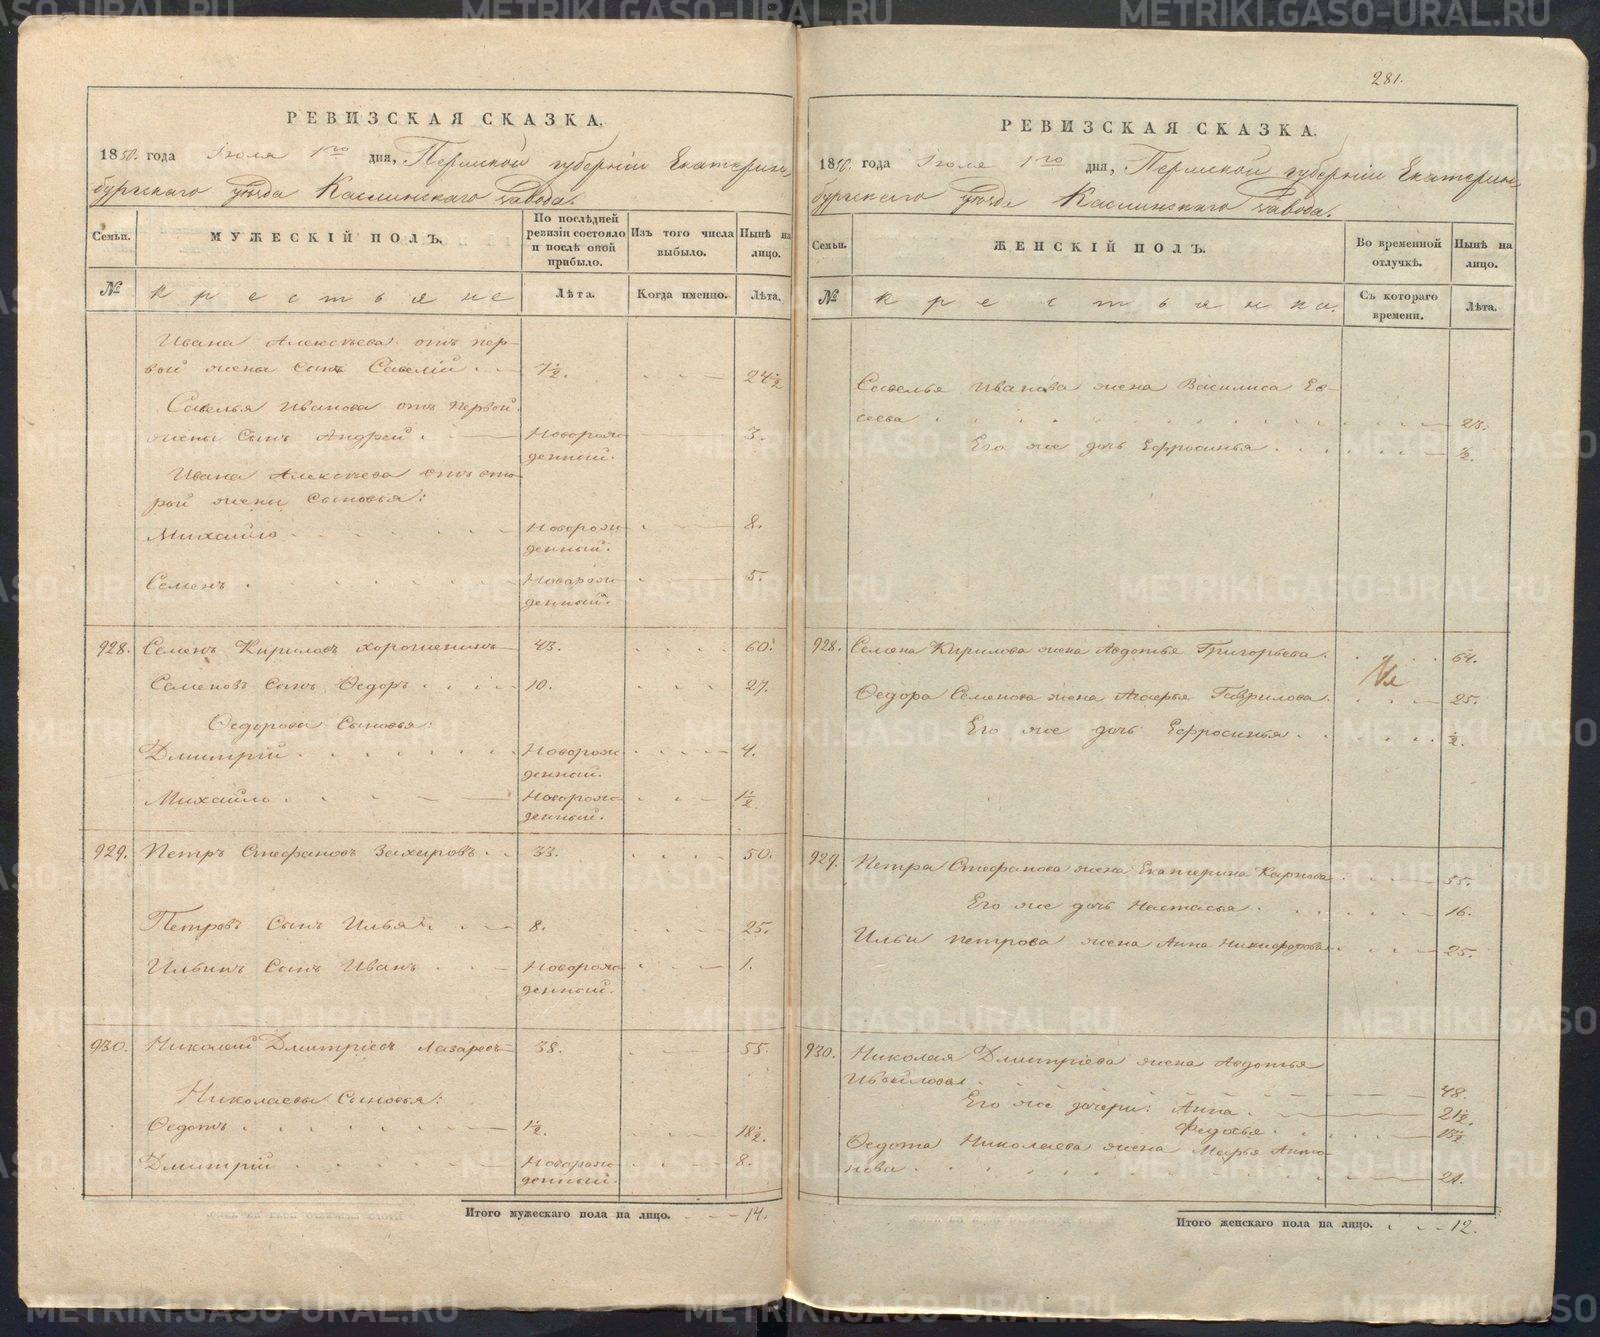 281.
РЕВИЗСКАЯ СКАЗКА.
1850. года Іюля 1го дня, Пермской губерніи Екатерин-
бургскаго уѣзда Каслинскаго Завода.
Семьи.
МУЖЕСКІЙ ПОЛЪ.
По послѣдней ревизіи состояло и послѣ оной прибыло.
Изъ того числа выбыло.
Нынѣ на лицо.
№
Крестьяне
Лѣта.
Когда именно.
Лѣта.
Ивана Алексѣева отъ пер-
вой жены сынъ Савелій 7½. 24½
Савелья Иванова отъ первой
жены сынъ Андрей Новорож- 3.
денный.
Ивана Алексѣева отъ вто-
рой жены Сыновья:
Михайло Новорож- 8.
денный.
Семенъ Новорож- 5.
денный.
928. Семенъ Кириловъ Хорошенинъ 43. 60.
Семеновъ сынъ Ѳедоръ 10. 27.
Ѳедоровы Сыновья:
Дмитрій Новорож- 4.
денный.
Михайло Новорож- 1½
денный.
929. Петръ Стефановъ Захаровъ 33. 50.
Петровъ Сынъ Илья 8. 25.
Ильинъ Сынъ Иванъ Новорож- 1.
денный.
930. Николай Дмитріевъ Лазаревъ 38. 55.
Николаевы Сыновья:
Ѳедотъ 1½. 18½.
Дмитрій Новорож- 8.
денный.
Итого мужескаго пола на лицо. 14.
РЕВИЗСКАЯ СКАЗКА.
1850. года Іюля 1го дня, Пермской губерніи Екатерин-
бургскаго уѣзда Каслинскаго Завода.
Семьи.
ЖЕНСКІЙ ПОЛЪ.
Во временной отлучкѣ.
Нынѣ на лицо.
№
Крестьянки.
Съ котораго времени.
Лѣта.
Савелья Иванова жена Василиса Ев-
сеева 23.
Его же дочь Ефросинья ½.
928. Семена Кирилова жена Авдотья Григорьева. 64.
Ѳедора Семенова жена Агафья Гаврилова. 25.
Его же дочь Ефросинья ½.
929. Петра Стефанова жена Екатерина Карпова 55.
Его же дочь Настасья 16.
Ильи Петрова жена Анна Никифорова 25.
930. Николая Дмитріева жена Авдотья
48.
Его же дочери: Анна 21½.
Федосья 13½
Ѳедота Николаева жена Марья Анто-
нова 21.
Итого женскаго пола на лицо. 12.
METRIKI.GASO-URAL.RU